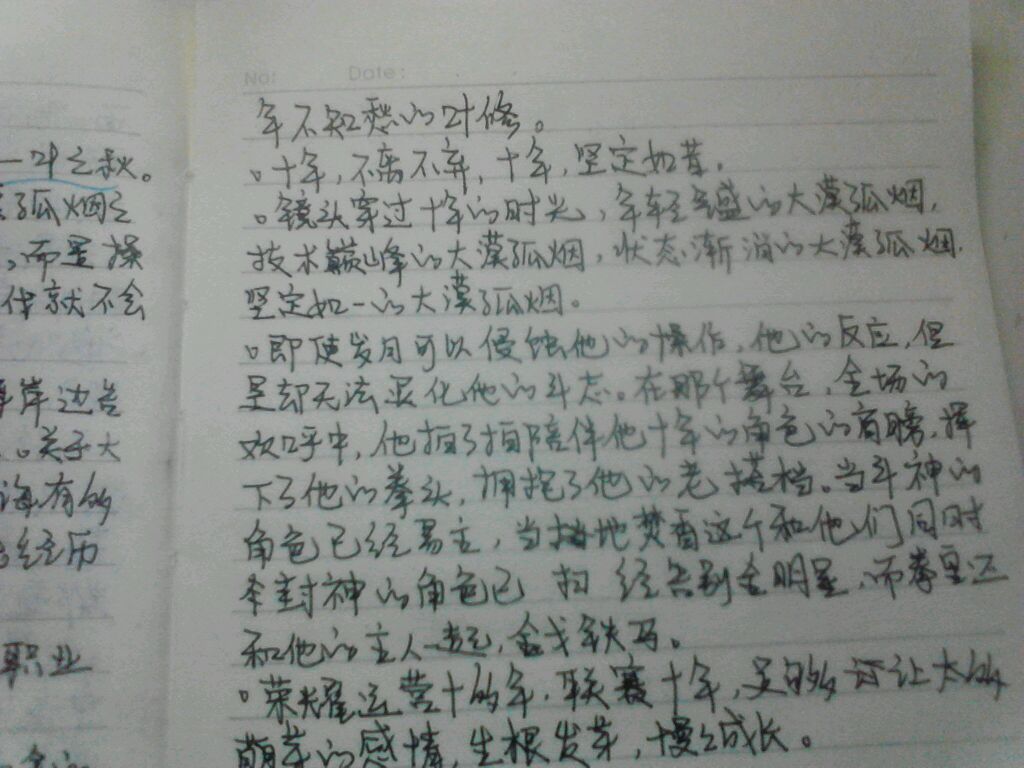 No:
Date:
年不知愁的叶修。
。十年，不离不弃，十年，坚定如昔。
。镜头穿过十年的时光，年轻气盛的大漠孤烟，
技术巅峰的大漠孤烟，状态渐消的大漠孤烟，
坚定如一的大漠孤烟。
。即使岁月可以侵蚀他的操作，他的反应，但
是却无法退化他的斗志。在那个舞台，全场的
欢呼中，他拍了拍陪伴他十年的角色的肩膀，挥
下了他的拳头，拥抱了他的老搭档。当斗神的
角色已经易主，当扫地焚香这个和他们同时
封神的角色已 经告别全明星，而拳皇还
和他的主人一起，金戈铁马。
。荣耀运营十的年，联赛十年，足够让太多
萌芽的感情，生根发芽，慢慢成长。
一叶之秋。
孤烟之
，而是操
就不会
岸边
。关于大
海有的
经历
职业